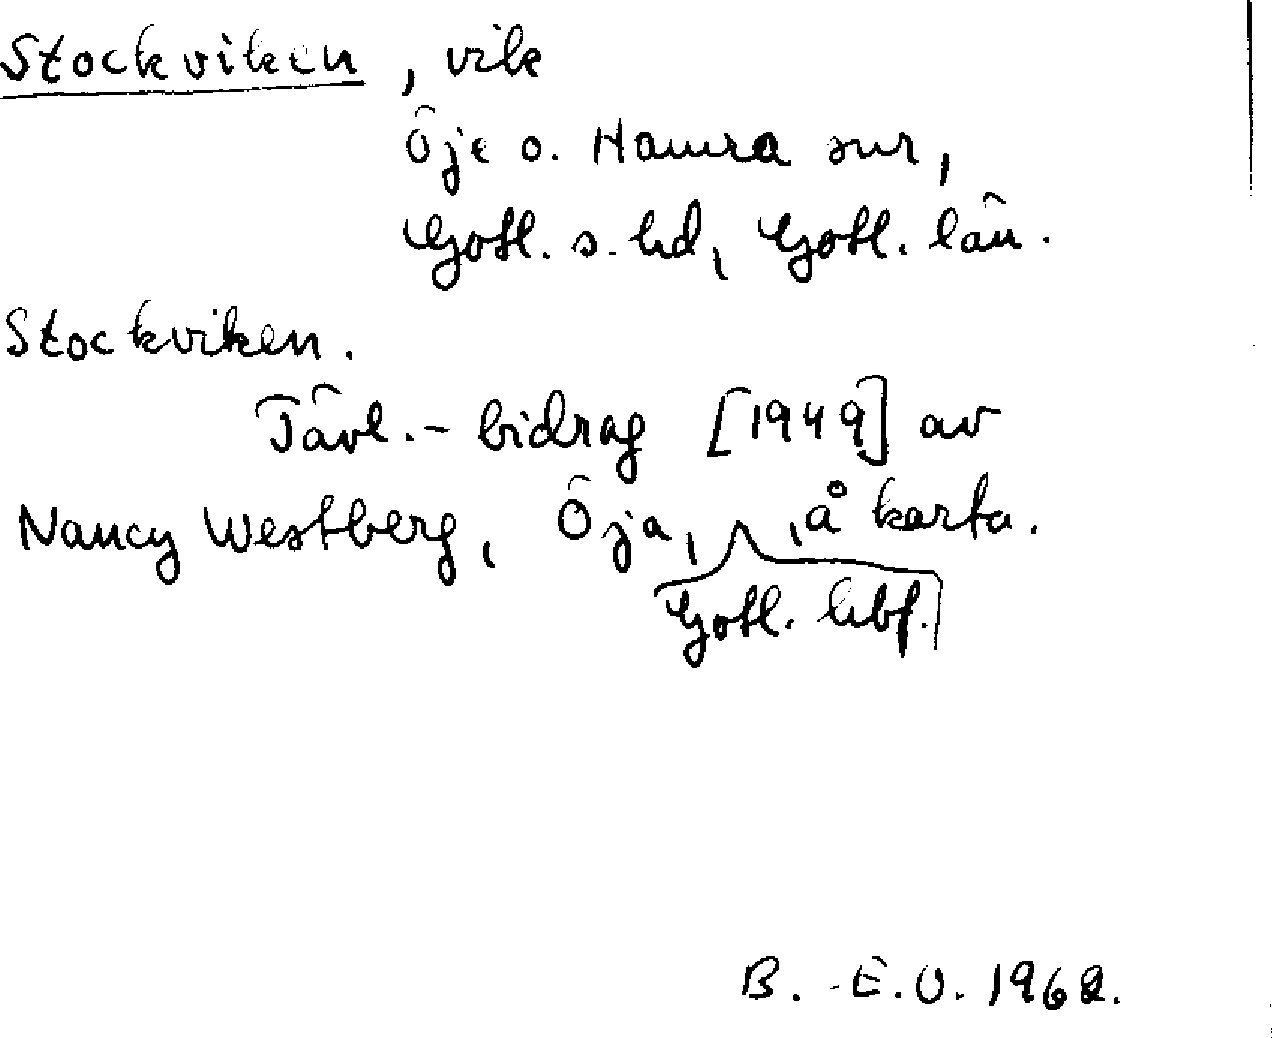 Stockviken, vik
Öje o. Hamra snr,
Gotl. s. hd, Gotl. län.
Stockviken.
Tävl.-bidrag [1949] av
Nancy Westberg, Öja, , å karta.
Gotl. hbf.
B.-E.O. 1962.